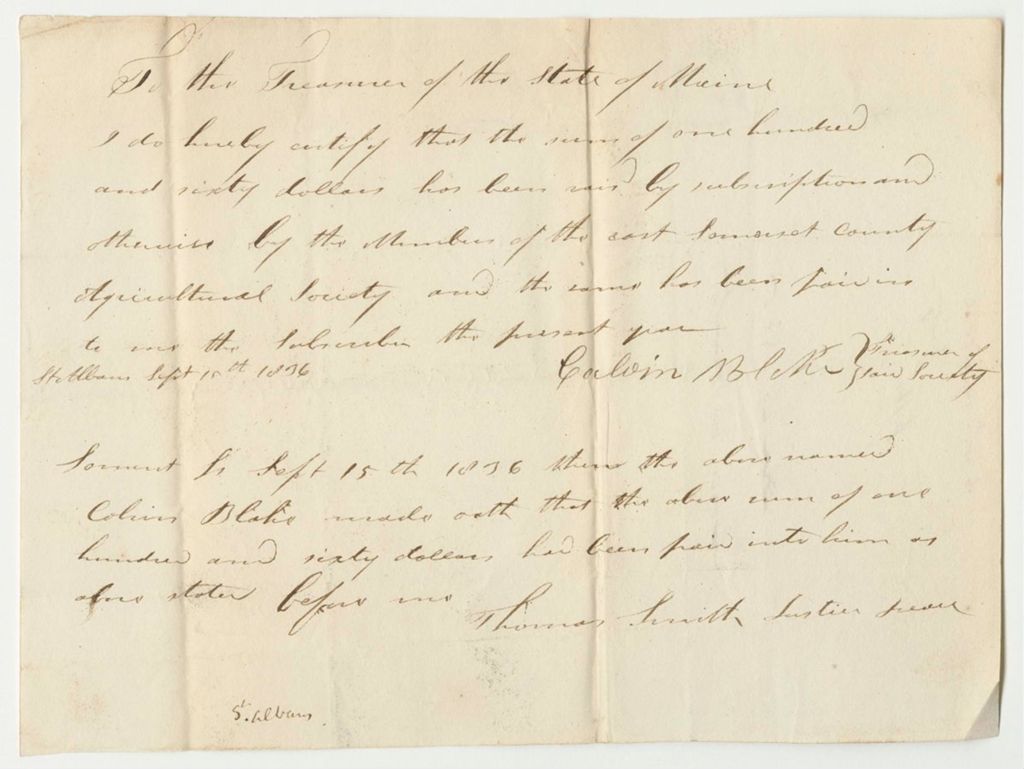 To the Treasurer of the State of Maine
I do hereby certify that the sum of one hundred
and sixty dollars has been raisd by subscription and
otherwise by the Members of the east Somerset County
Agricultural Society and the same has been paid in
to me the Subscriber the present year
St Albans Sept 15th 1836 Calvin Blake } Treasurer of
said Society
Somerset Ss Sept 15th 1836 then the above named
Calvin Blake made oath that the above sum of one
hundred and sixty dollars had been paid into him as
above stated before me
Thomas Smith Justice peace
St. Albans